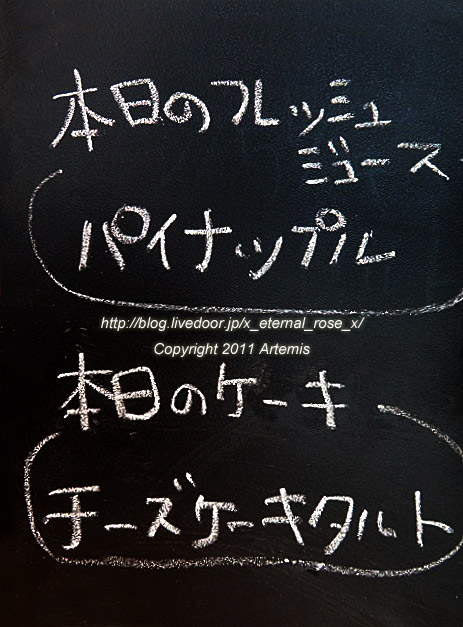 本日のフレッシュ
ジュース
パイナップル
http://blog.livedoor.jp/x_eternal_rose_x/
Copyright 2011 Artemis
本日のケーキ
チーズケーキタルト